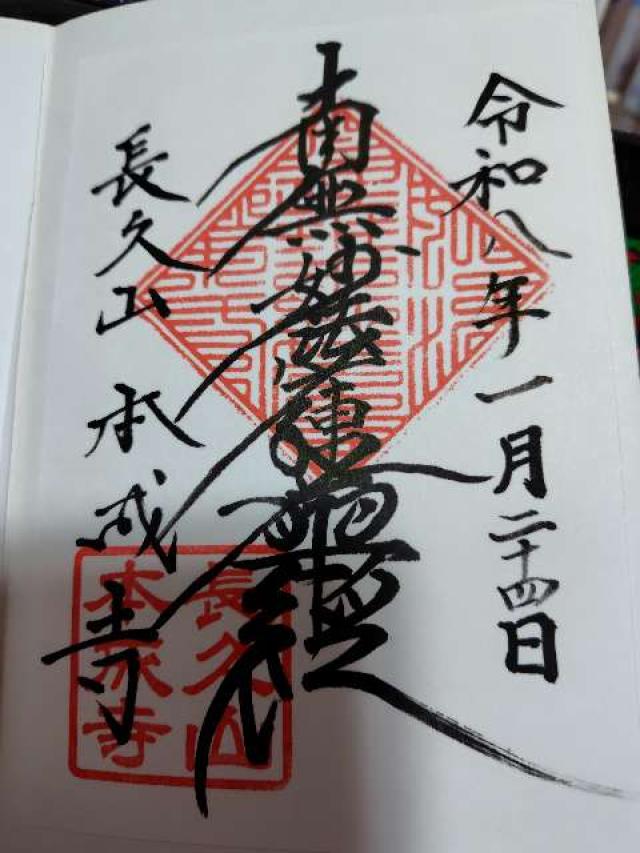 令和八年一月二十四日
南無妙法蓮華經
長久山 本成寺
長久山
本成寺